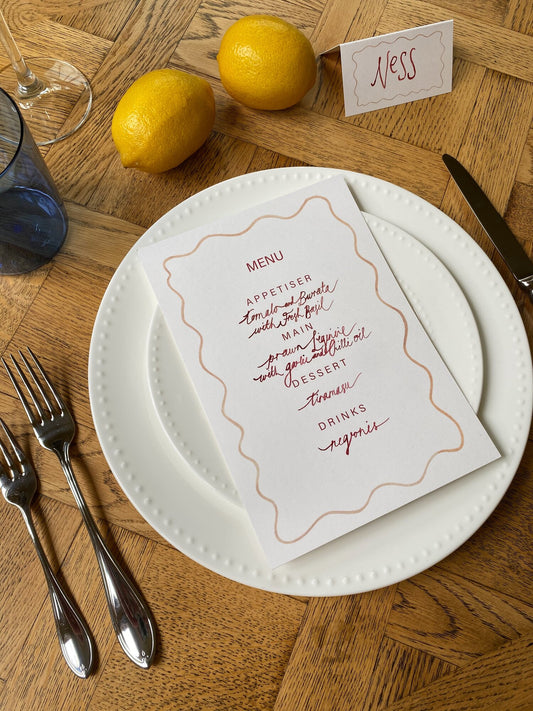 Ness
MENU
APPETISER
tomato and Burrata
with Fresh Basil
MAIN
prawn
with garlic and chilli oil
DESSERT
tiramasu
DRINKS
negronis